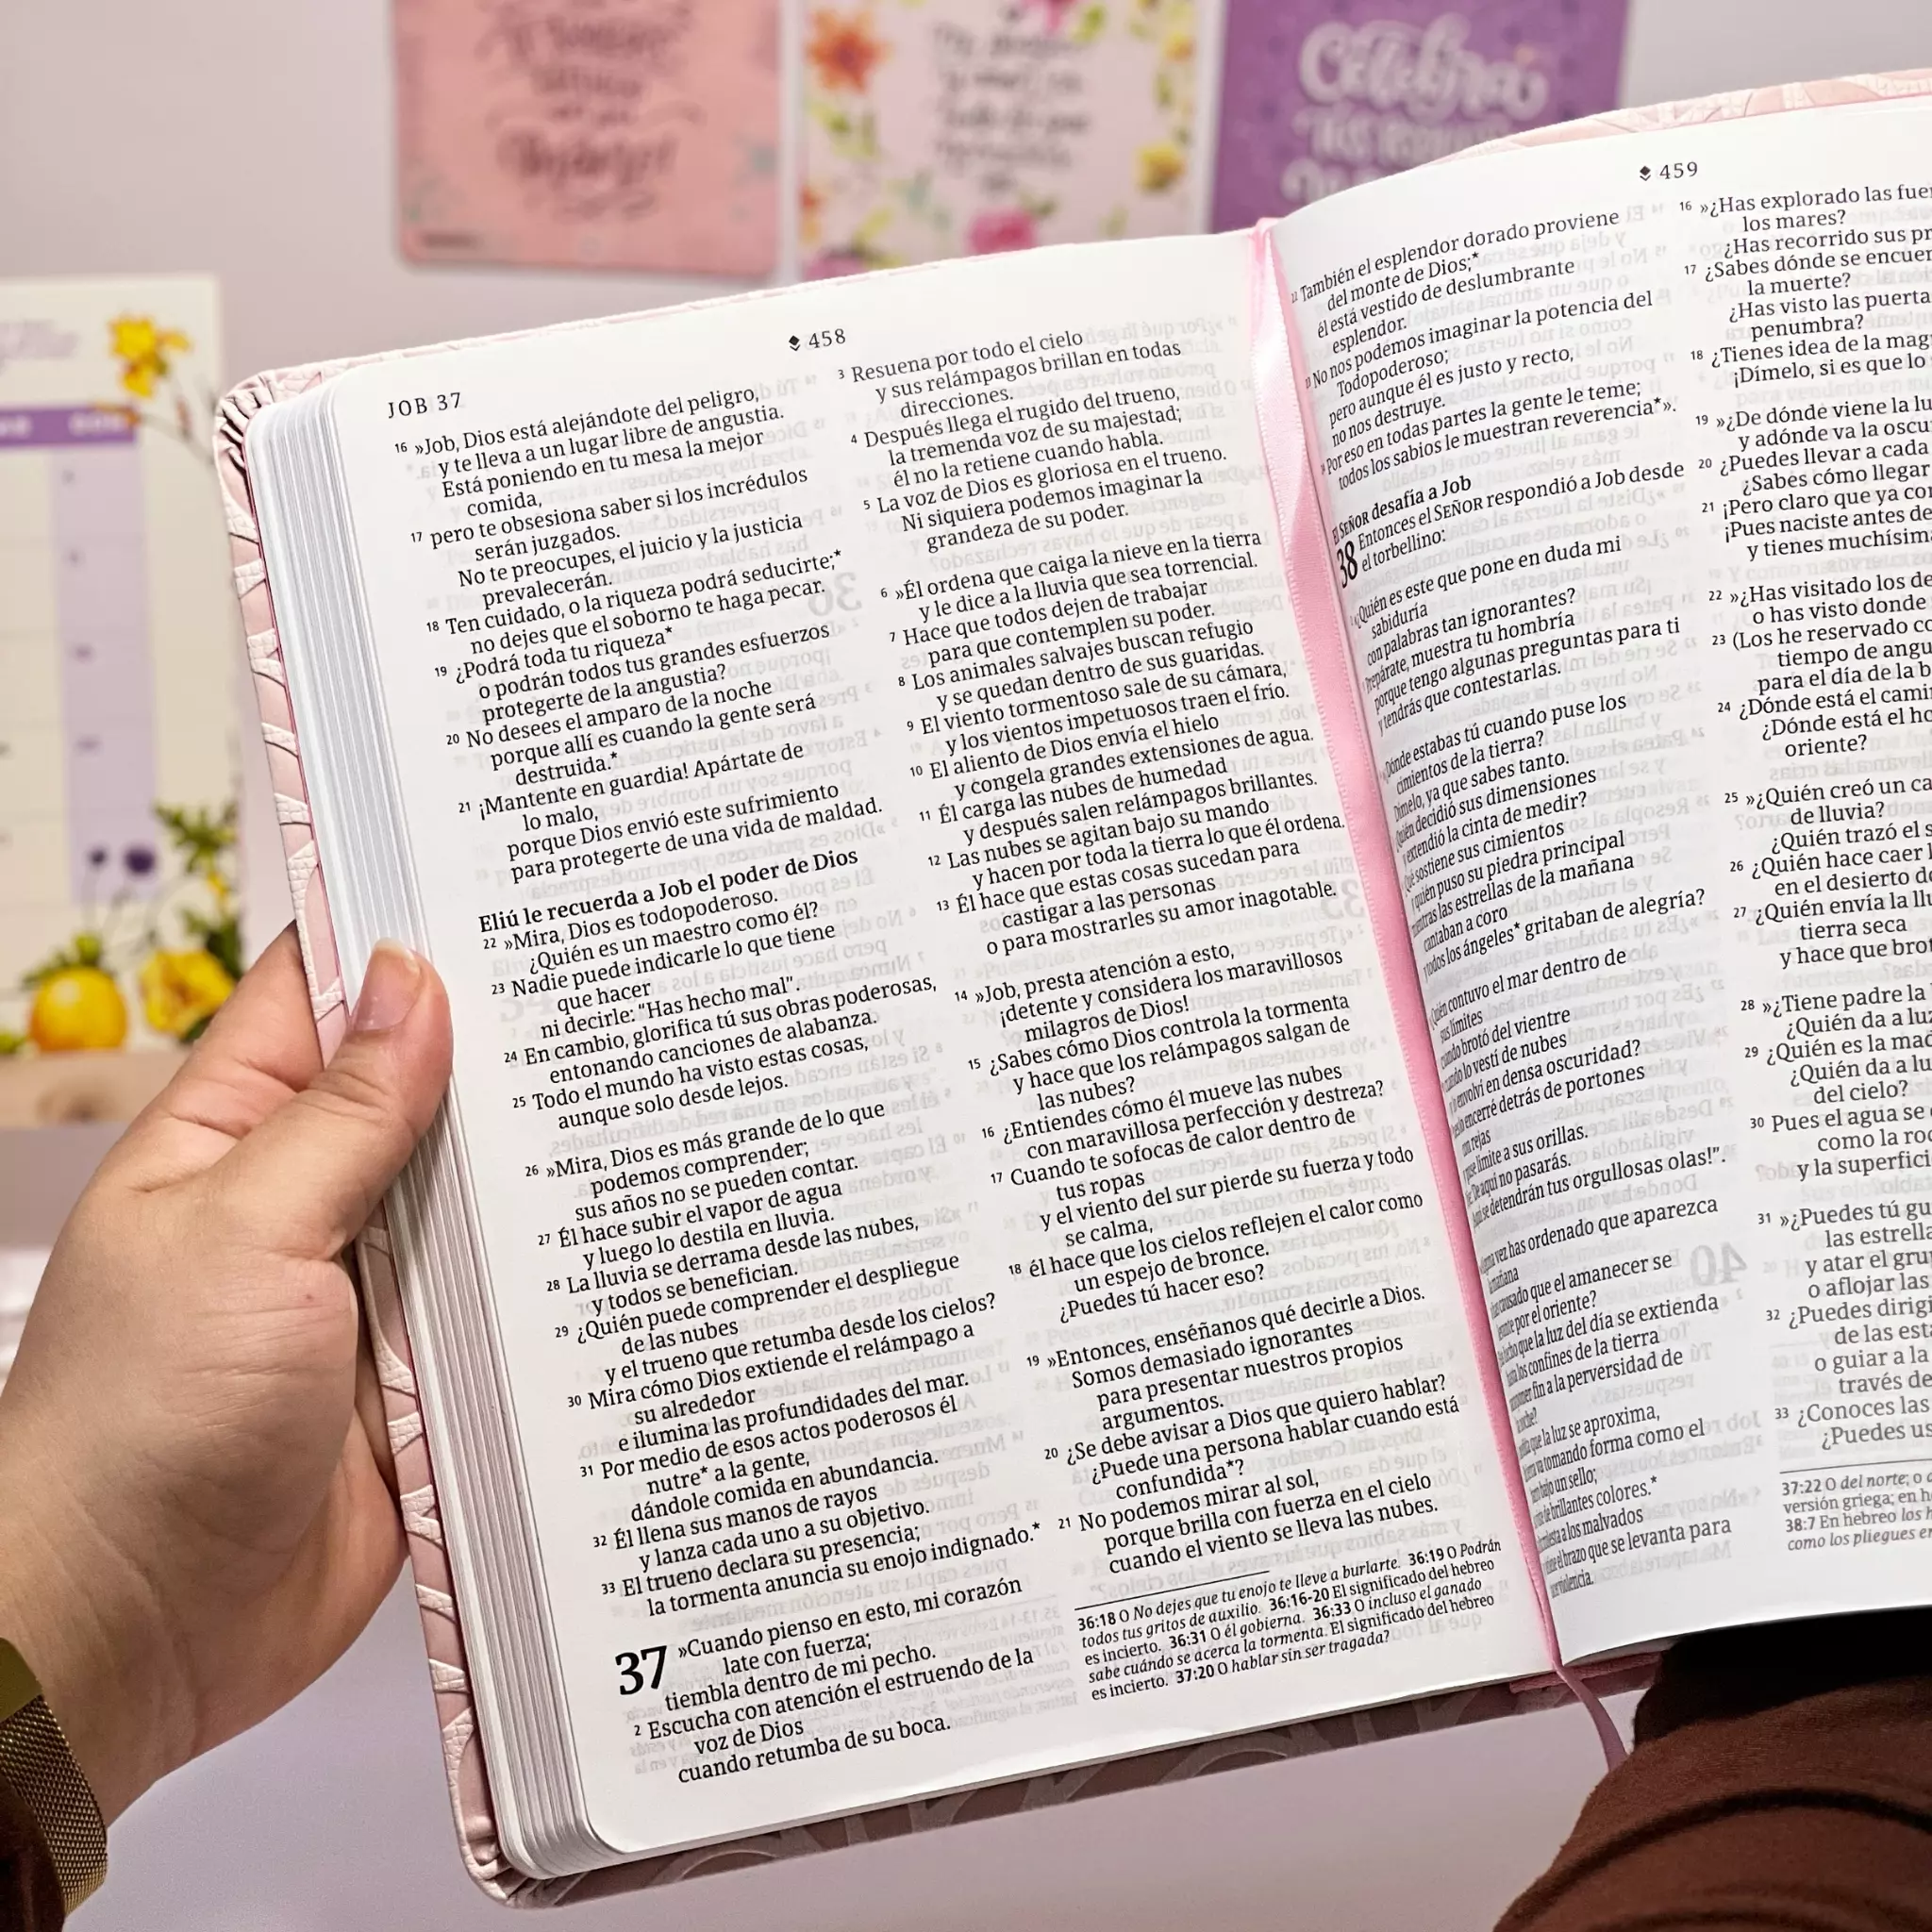 Celebra
JOB 37
458
16 »Job, Dios está alejándote del peligro,
y te lleva a un lugar libre de angustia.
Está poniendo en tu mesa la mejor
comida,
17 pero te obsesiona saber si los incrédulos
serán juzgados.
No te preocupes, el juicio y la justicia
prevalecerán.
18 Ten cuidado, o la riqueza podrá seducirte;*
no dejes que el soborno te haga pecar.
19 ¿Podrá toda tu riqueza*
o podrán todos tus grandes esfuerzos
protegerte de la angustia?
20 No desees el amparo de la noche
porque allí es cuando la gente será
destruida.*
21 ¡Mantente en guardia! Apártate de
lo malo,
porque Dios envió este sufrimiento
para protegerte de una vida de maldad.
Eliú le recuerda a Job el poder de Dios
22 »Mira, Dios es todopoderoso.
¿Quién es un maestro como él?
23 Nadie puede indicarle lo que tiene
que hacer
ni decirle: “Has hecho mal”.
24 En cambio, glorifica tú sus obras poderosas,
entonando canciones de alabanza.
25 Todo el mundo ha visto estas cosas,
aunque solo desde lejos.
26 »Mira, Dios es más grande de lo que
podemos comprender;
sus años no se pueden contar.
27 Él hace subir el vapor de agua
y luego lo destila en lluvia.
28 La lluvia se derrama desde las nubes,
y todos se benefician.
29 ¿Quién puede comprender el despliegue
de las nubes
y el trueno que retumba desde los cielos?
30 Mira cómo Dios extiende el relámpago a
su alrededor
e ilumina las profundidades del mar.
31 Por medio de esos actos poderosos él
nutre* a la gente,
dándole comida en abundancia.
32 Él llena sus manos de rayos
y lanza cada uno a su objetivo.
33 El trueno declara su presencia;
la tormenta anuncia su enojo indignado.*
37 »Cuando pienso en esto, mi corazón
late con fuerza;
tiembla dentro de mi pecho.
2 Escucha con atención el estruendo de la
voz de Dios
cuando retumba de su boca.
3 Resuena por todo el cielo
y sus relámpagos brillan en todas
direcciones.
4 Después llega el rugido del trueno,
la tremenda voz de su majestad;
él no la retiene cuando habla.
5 La voz de Dios es gloriosa en el trueno.
Ni siquiera podemos imaginar la
grandeza de su poder.
6 »Él ordena que caiga la nieve en la tierra
y le dice a la lluvia que sea torrencial.
7 Hace que todos dejen de trabajar
para que contemplen su poder.
8 Los animales salvajes buscan refugio
y se quedan dentro de sus guaridas.
9 El viento tormentoso sale de su cámara,
y los vientos impetuosos traen el frío.
10 El aliento de Dios envía el hielo
y congela grandes extensiones de agua.
11 Él carga las nubes de humedad
y después salen relámpagos brillantes.
12 Las nubes se agitan bajo su mando
y hacen por toda la tierra lo que él ordena.
13 Él hace que estas cosas sucedan para
castigar a las personas
o para mostrarles su amor inagotable.
14 »Job, presta atención a esto,
¡detente y considera los maravillosos
milagros de Dios!
15 ¿Sabes cómo Dios controla la tormenta
y hace que los relámpagos salgan de
las nubes?
16 ¿Entiendes cómo él mueve las nubes
con maravillosa perfección y destreza?
17 Cuando te sofocas de calor dentro de
tus ropas
y el viento del sur pierde su fuerza y todo
se calma,
18 él hace que los cielos reflejen el calor como
un espejo de bronce.
¿Puedes tú hacer eso?
19 »Entonces, enséñanos qué decirle a Dios.
Somos demasiado ignorantes
para presentar nuestros propios
argumentos.
20 ¿Se debe avisar a Dios que quiero hablar?
¿Puede una persona hablar cuando está
confundida*?
21 No podemos mirar al sol,
porque brilla con fuerza en el cielo
cuando el viento se lleva las nubes.
36:18 O No dejes que tu enojo te lleve a burlarte. 36:19 O Podrán
todos tus gritos de auxilio. 36:16-20 El significado del hebreo
es incierto. 36:31 O él gobierna. 36:33 O incluso el ganado
sabe cuándo se acerca la tormenta. El significado del hebreo
es incierto. 37:20 O hablar sin ser tragada?
459
22 También el esplendor dorado proviene
del monte de Dios;*
él está vestido de deslumbrante
esplendor.
23 No nos podemos imaginar la potencia del
Todopoderoso;
pero aunque él es justo y recto,
no nos destruye.
Por eso en todas partes la gente le teme;
todos los sabios le muestran reverencia*».
El SEÑOR desafía a Job
38 Entonces el SEÑOR respondió a Job desde
el torbellino:
¿Quién es este que pone en duda mi
sabiduría
con palabras tan ignorantes?
Prepárate, muestra tu hombría
porque tengo algunas preguntas para ti
y tendrás que contestarlas.
¿Dónde estabas tú cuando puse los
cimientos de la tierra?
Dímelo, ya que sabes tanto.
¿Quién decidió sus dimensiones
y extendió la cinta de medir?
sostiene sus cimientos
y quién puso su piedra principal
mientras las estrellas de la mañana
cantaban a coro
y todos los ángeles* gritaban de alegría?
¿Quién contuvo el mar dentro de
sus límites
cuando brotó del vientre
cuando lo vestí de nubes
envolví en densa oscuridad?
encerré detrás de portones
con rejas
límite a sus orillas.
De aquí no pasarás.
se detendrán tus orgullosas olas!”.
vez has ordenado que aparezca
mañana
causado que el amanecer se
por el oriente?
que la luz del día se extienda
los confines de la tierra
fin a la perversidad de
noche?
que la luz se aproxima,
va tomando forma como el
bajo un sello;
de brillantes colores.*
a los malvados
el brazo que se levanta para
violencia.
16 »¿Has explorado las
los mares?
¿Has recorrido sus
17 ¿Sabes dónde se
la muerte?
¿Has visto las
penumbra?
18 ¿Tienes idea de la
¡Dímelo, si es que lo
19 »¿De dónde viene la
y adónde va la
20 ¿Puedes llevar a cada
¿Sabes cómo llegar
21 ¡Pero claro que ya
¡Pues naciste antes de
y tienes
22 »¿Has visitado los
o has visto donde
23 (Los he reservado
tiempo de
para el día de la
24 ¿Dónde está el
¿Dónde está el
oriente?
25 »¿Quién creó un
de lluvia?
¿Quién trazó el
26 ¿Quién hace caer
en el desierto
27 ¿Quién envía la
tierra seca
y hace que
28 »¿Tiene padre la
¿Quién da a
29 ¿Quién es la
¿Quién da a
del cielo?
30 Pues el agua se
como la
y la
31 »¿Puedes tú
las
y atar el
o aflojar las
32 ¿Puedes
de las
o guiar a la
través de
33 ¿Conoces las
¿Puedes
37:22 O del norte; o
versión griega; en
38:7 En hebreo los
como los pliegues